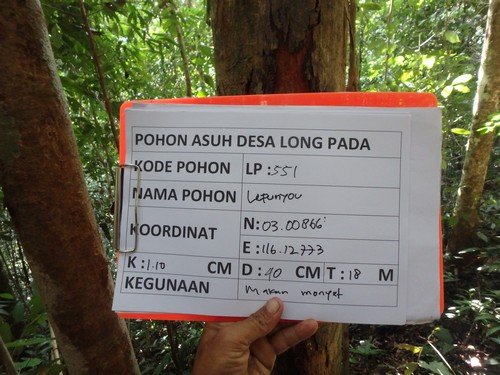 POHON ASUH DESA LONG PADA
KODE POHON LP : 551
NAMA POHON Lepunyou
KOORDINAT
N : 03.00866
E : 116.12773
K : 1.10 CM D : 40 CM T : 18 M
KEGUNAAN Makan monyet